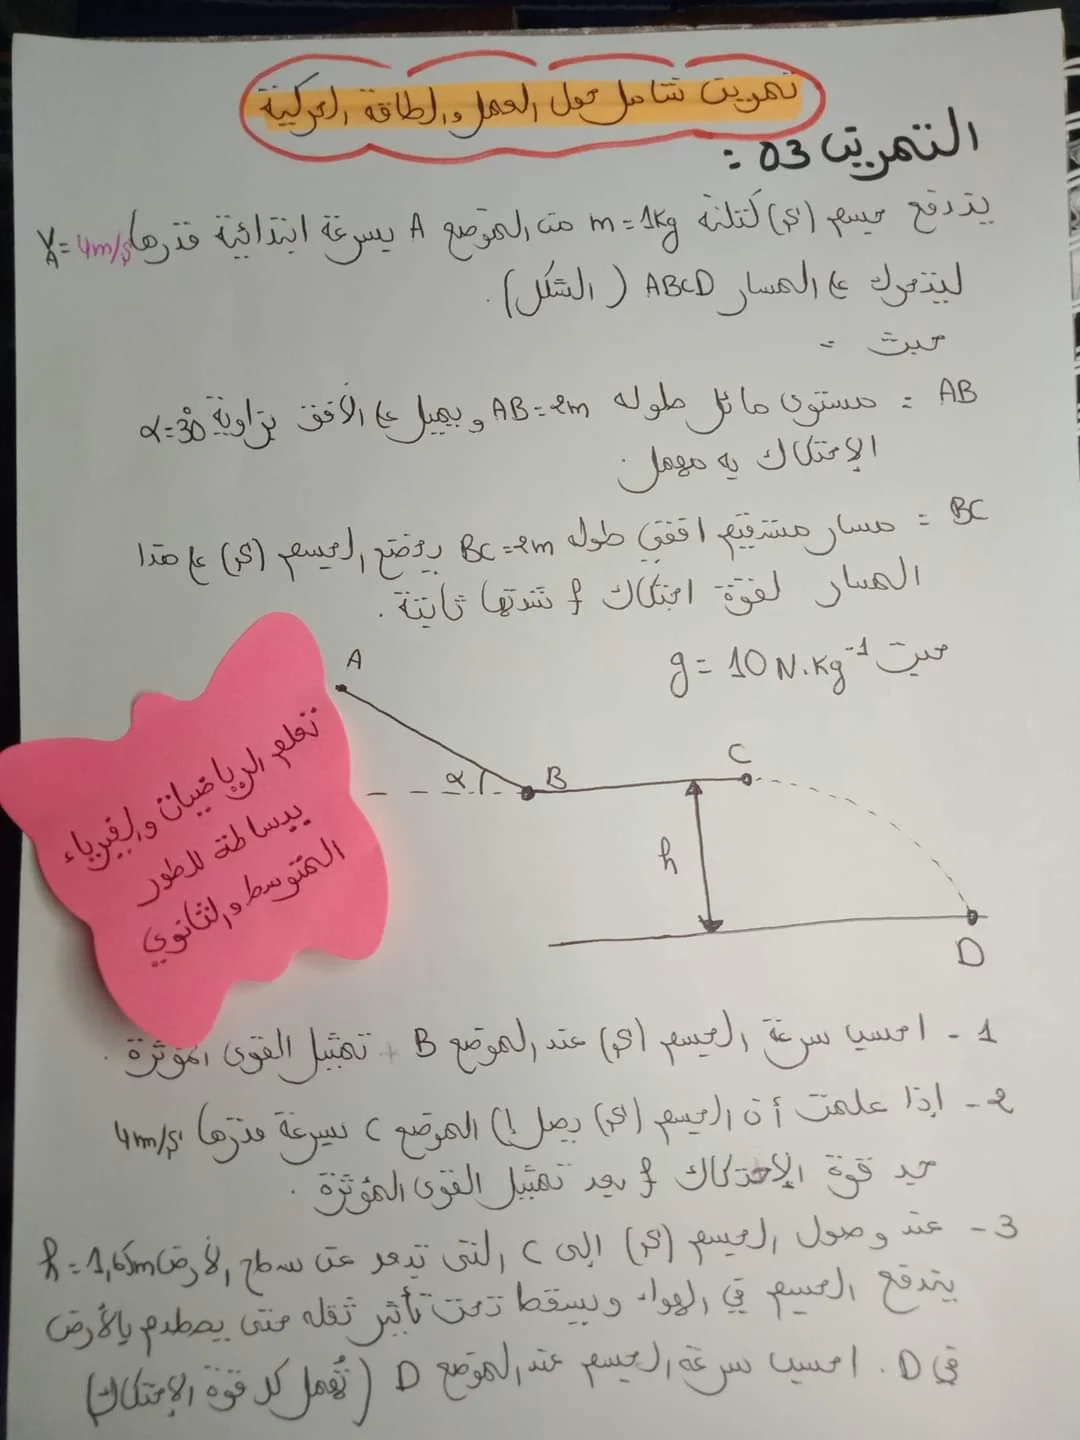 تمرين شامل حول العمل والطاقة الحركية
التمرين 03 :
يندفع جسم (S) كتلته m = 1kg من الموضع A بسرعة ابتدائية قدرها V_A = 4m/s
ليتحرك على المسار ABCD (الشكل).
حيث :
AB : مستوى مائل طوله AB = 2m ويميل على الأفق بزاوية α = 30°
الإحتكاك به مهمل.
BC : مسار مستقيم افقي طوله BC = 2m يخضع الجسم (S) على هذا
المسار لقوة احتكاك f شدتها ثابتة.
حيث g = 10 N.kg⁻¹
A
α
B
C
h
D
تعلم الرياضيات والفيزياء
ببساطة للطور
المتوسط والثانوي
1 - احسب سرعة الجسم (S) عند الموضع B + تمثيل القوى المؤثرة.
2 - إذا علمت أن الجسم (S) يصل إلى الموضع C بسرعة قدرها 4m/s
جد قوة الإحتكاك f بعد تمثيل القوى المؤثرة.
3 - عند وصول الجسم (S) إلى C التي تبعد عن سطح الأرض h = 1,65m
يندفع الجسم في الهواء ويسقط تحت تأثير ثقله حتى يصطدم بالأرض
في D. احسب سرعة الجسم عند الموضع D (تُهمل كل قوة الإحتكاك)